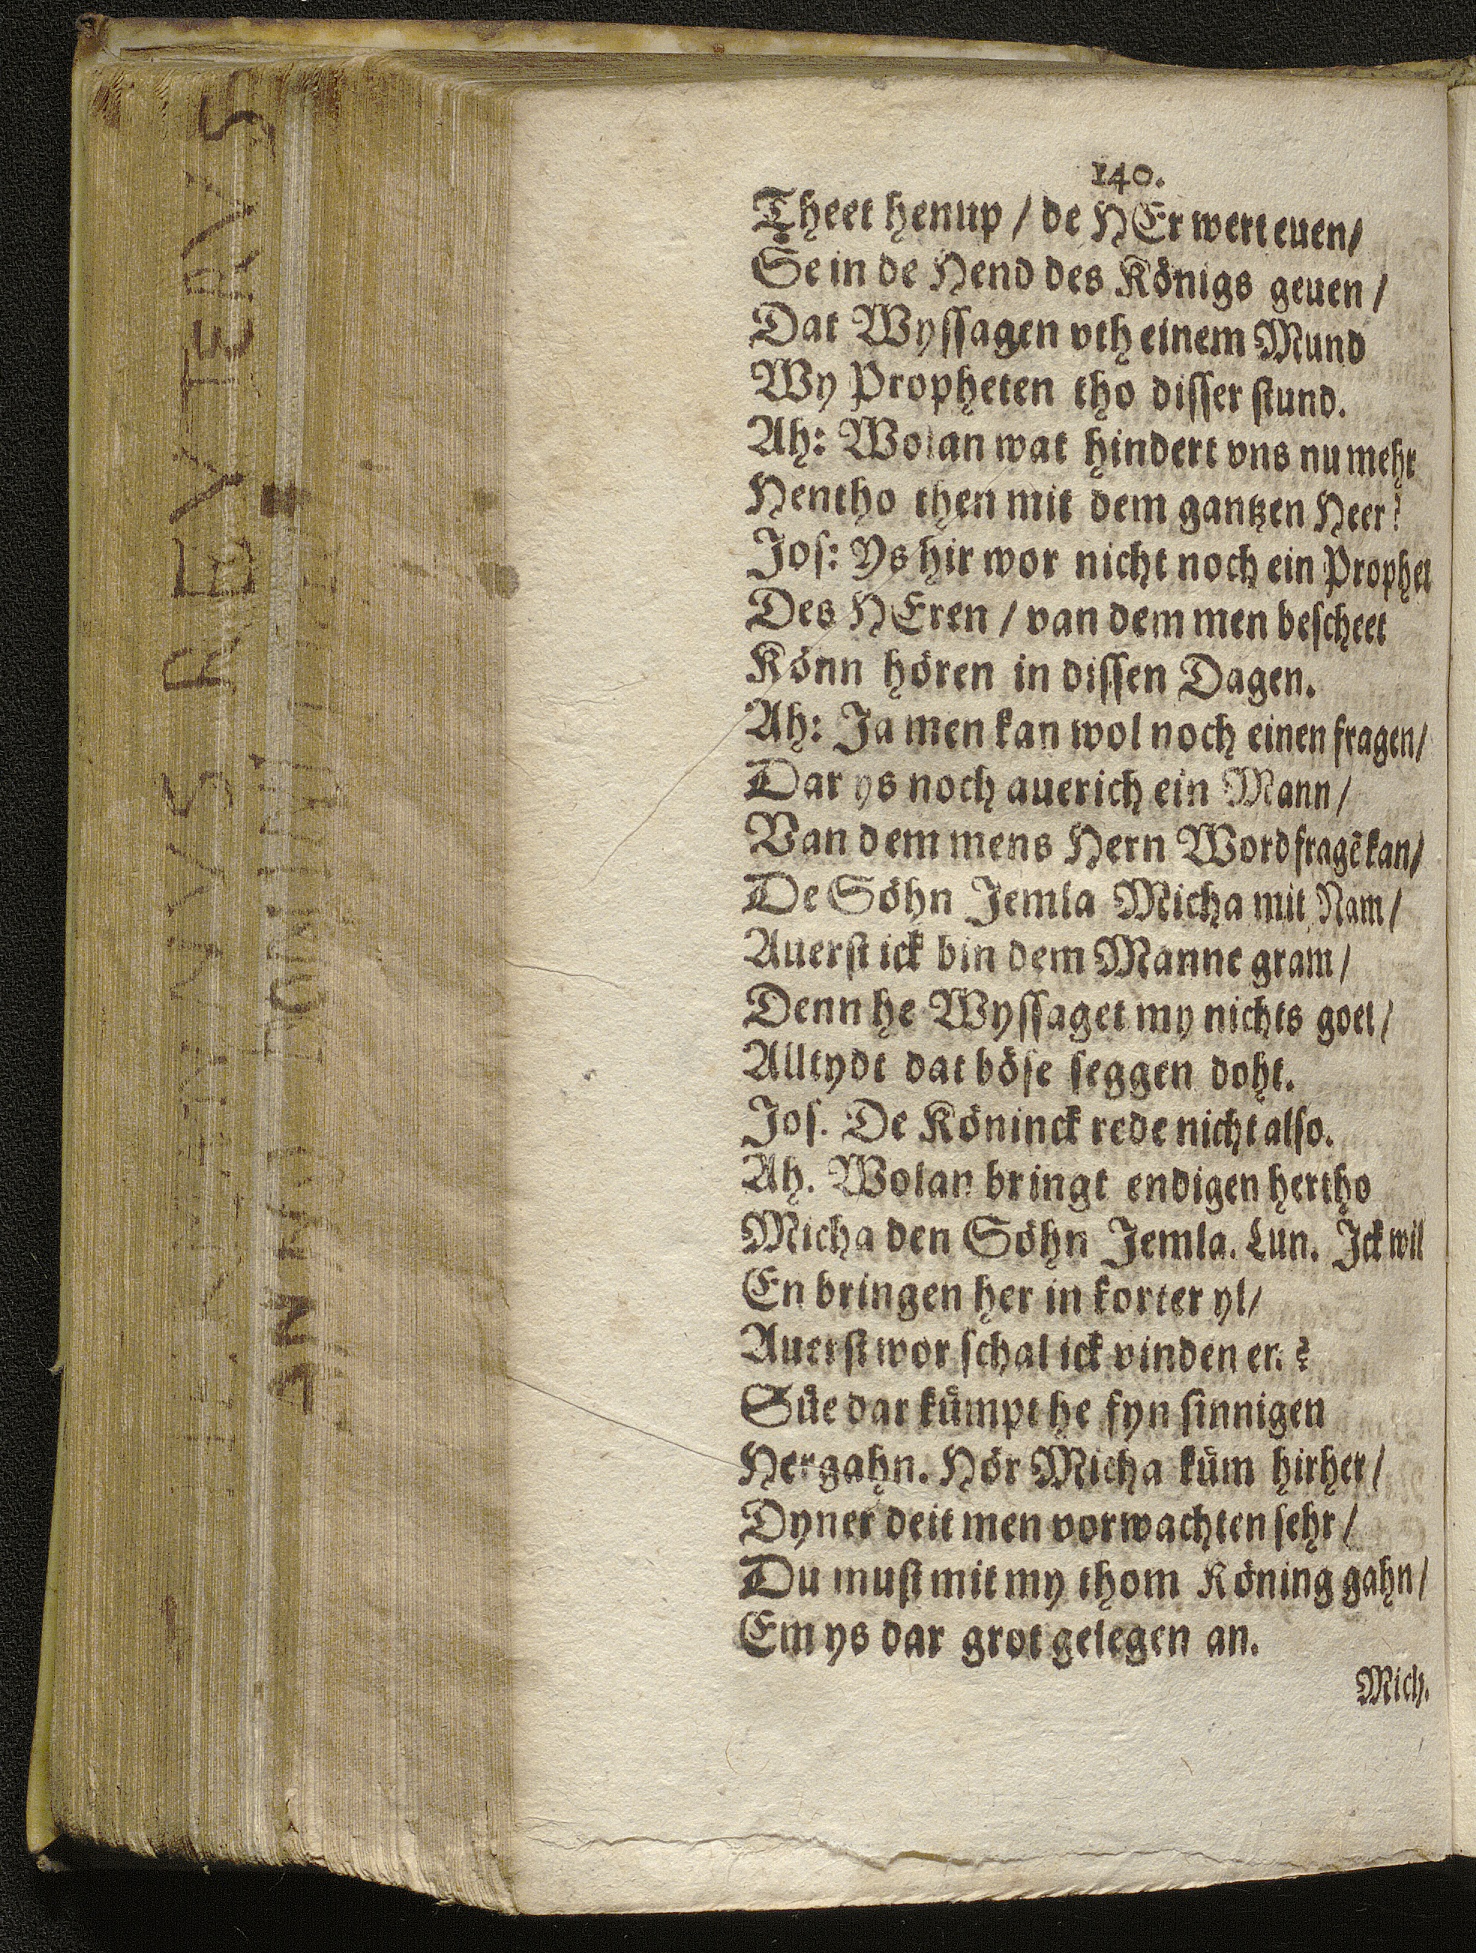 140.
Theet henup / de HEr wert euen/
Se in de Hend des Königs geuen /
Dat Wyssagen vth einem Mund
Wy Propheten tho disser stund.
Ah: Wolan wat hindert vns nu mehr
Hentho then mit dem gantzen Heer?
Jos: Ys hir wor nicht noch ein Prophet
Des HEren / van dem men bescheet
Könn hören in dissen Dagen.
Ah: Ja men kan wol noch einen fragen/
Dar ys noch auerich ein Mann/
Van dem mens Hern Word fragē kan/
De Söhn Jemla Micha mit Nam/
Auerst ick bin dem Manne gram/
Denn he Wyssaget my nichts goet/
Alltydt dat böse seggen doht.
Jos. De Köninck rede nicht also.
Ah. Wolan bringt endigen hertho
Micha den Söhn Jemla. Lun. Ick wil
En bringen her in korter yl/
Auerst wor schal ick vinden en ?
Süe dar kümpt he fyn sinnigen
Hergahn. Hör Micha küm hirher/
Dyner deit men vorwachten sehr/
Du must mit my thom Köning gahn/
Em ys dar grot gelegen an.
Mich.
REVTERVS
ANNO DOMINI